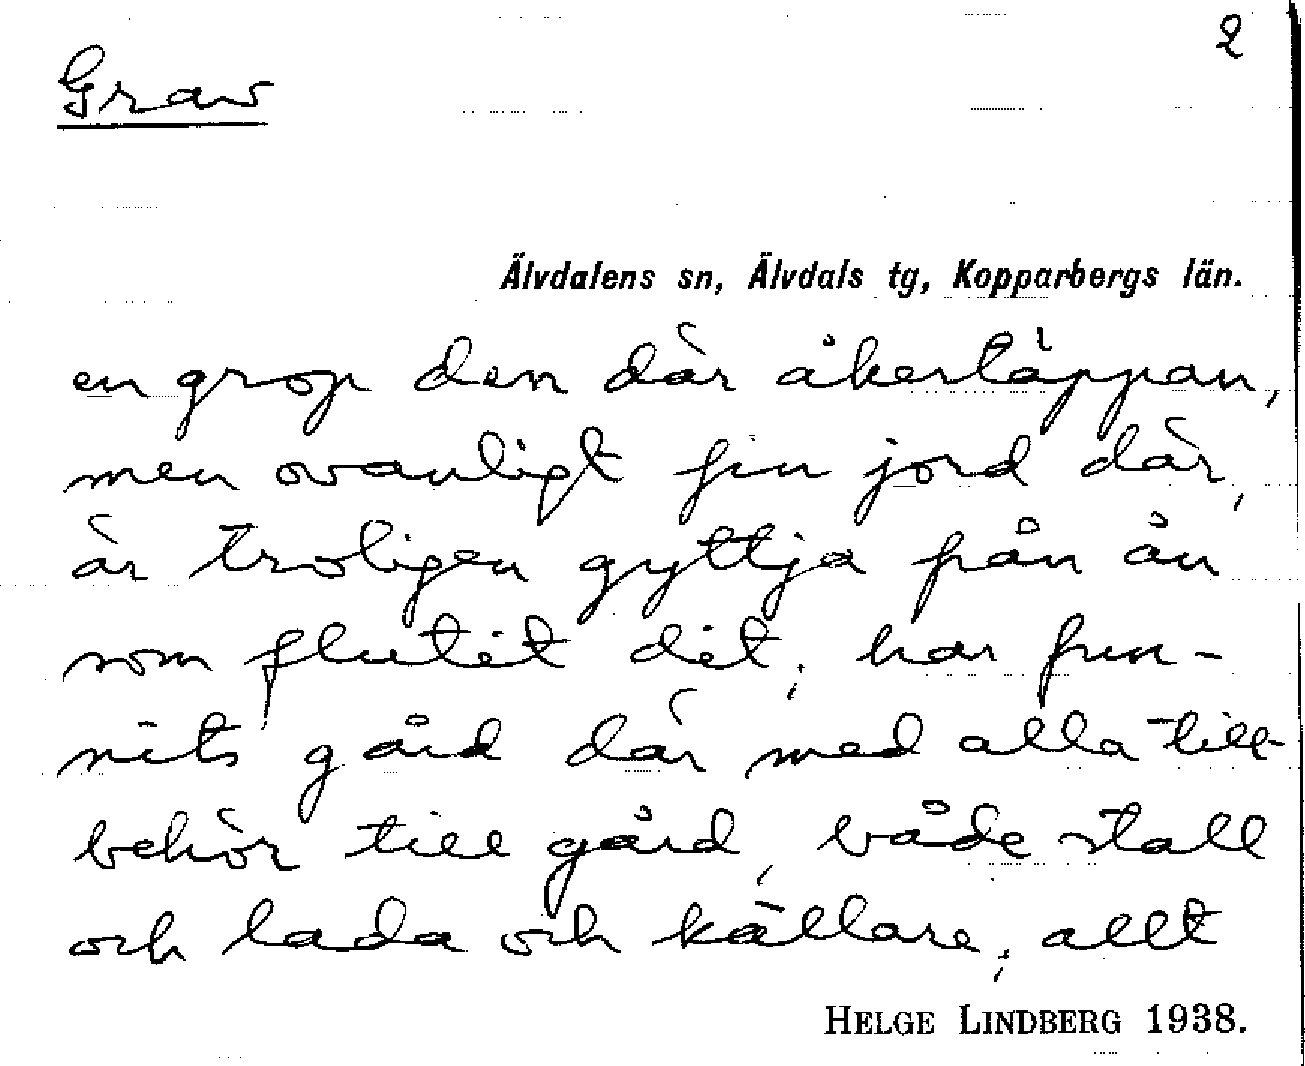 2
Grav
Älvdalens sn, Älvdals tg, Kopparbergs län.
en grop den där åkertäppan,
men ovanligt fin jord där,
är troligen gyttja från ån
som flutit dit; har fun-
nits gård där med alla till-
behör till gård, både stall
och lada och källare; allt
HELGE LINDBERG 1938.